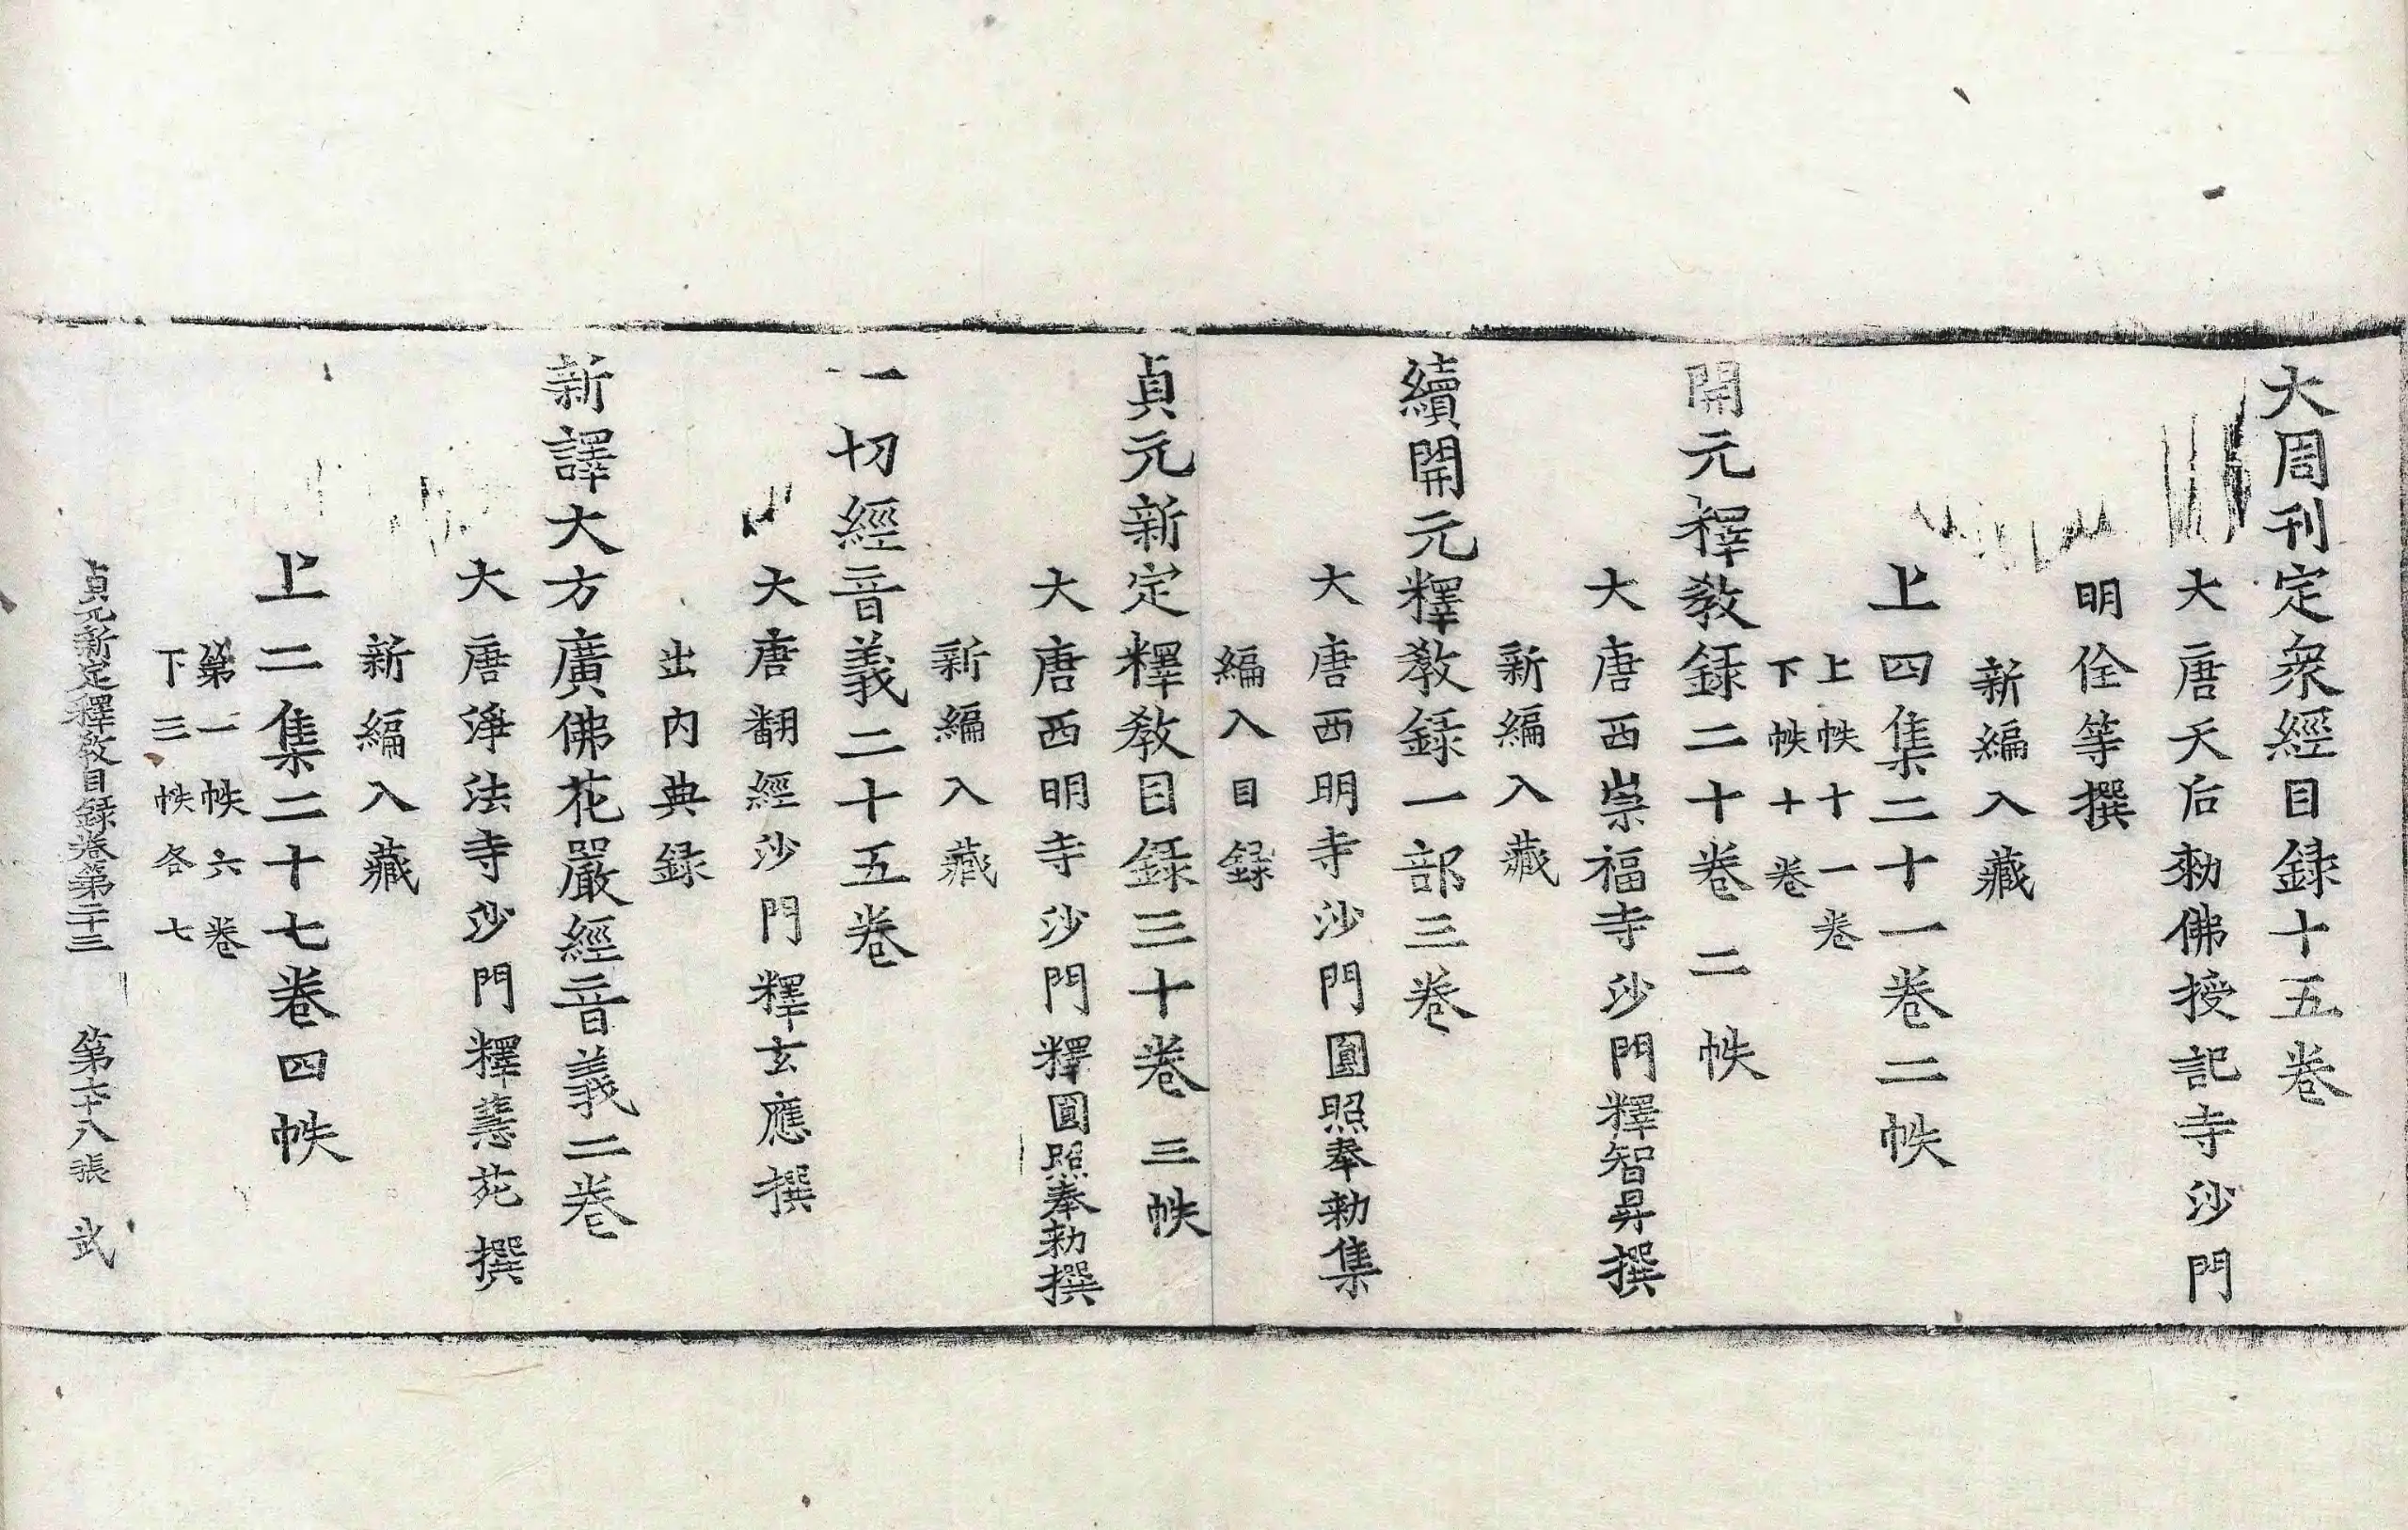 大周刊定衆經目録十五卷
大唐天后勑佛授記寺沙門
明佺等撰
新編入藏
上四集二十一卷二帙
上帙十一卷
下帙十卷
開元釋教録二十卷二帙
大唐西崇福寺沙門釋智昇撰
新編入藏
續開元釋教録一部三卷
大唐西明寺沙門圓照奉勑集
編入目録
貞元新定釋教目録三十卷三帙
大唐西明寺沙門釋圓照奉勑撰
新編入藏
一切經音義二十五卷
大唐翻經沙門釋玄應撰
出内典録
新譯大方廣佛花嚴經音義二卷
大唐淨法寺沙門釋慧苑撰
新編入藏
上二集二十七卷四帙
第一帙六卷
下三帙各七
貞元新定釋教目録卷第二十三 第六十八張 武